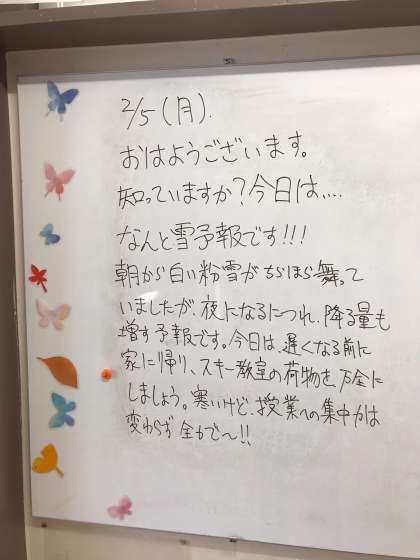 2/5(月).
おはようございます。
知っていますか?今日は、...
なんと雪予報です!!!
朝から白い粉雪がちらほら舞って
いましたが、夜になるにつれ、降る量も
増す予報です。今日は、遅くなる前に
家に帰り、スキー教室の荷物を万全に
しましょう。寒いけど、授業への集中力は
変わらず全力で〜!!